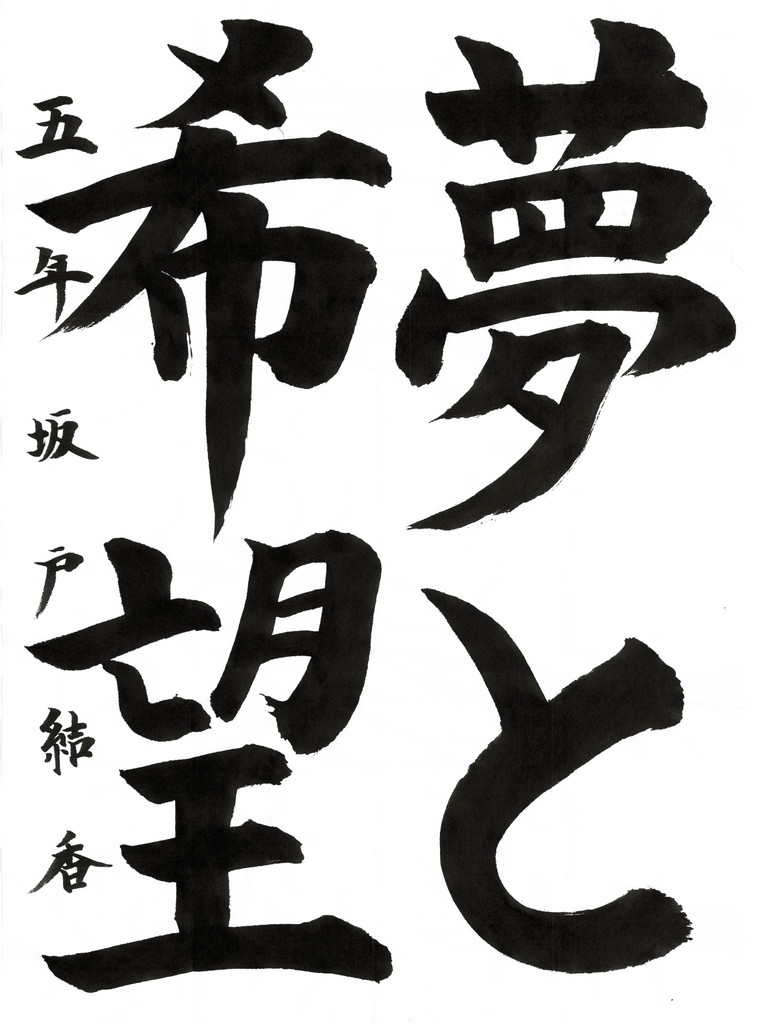 夢と
希望
五年坂戸結香